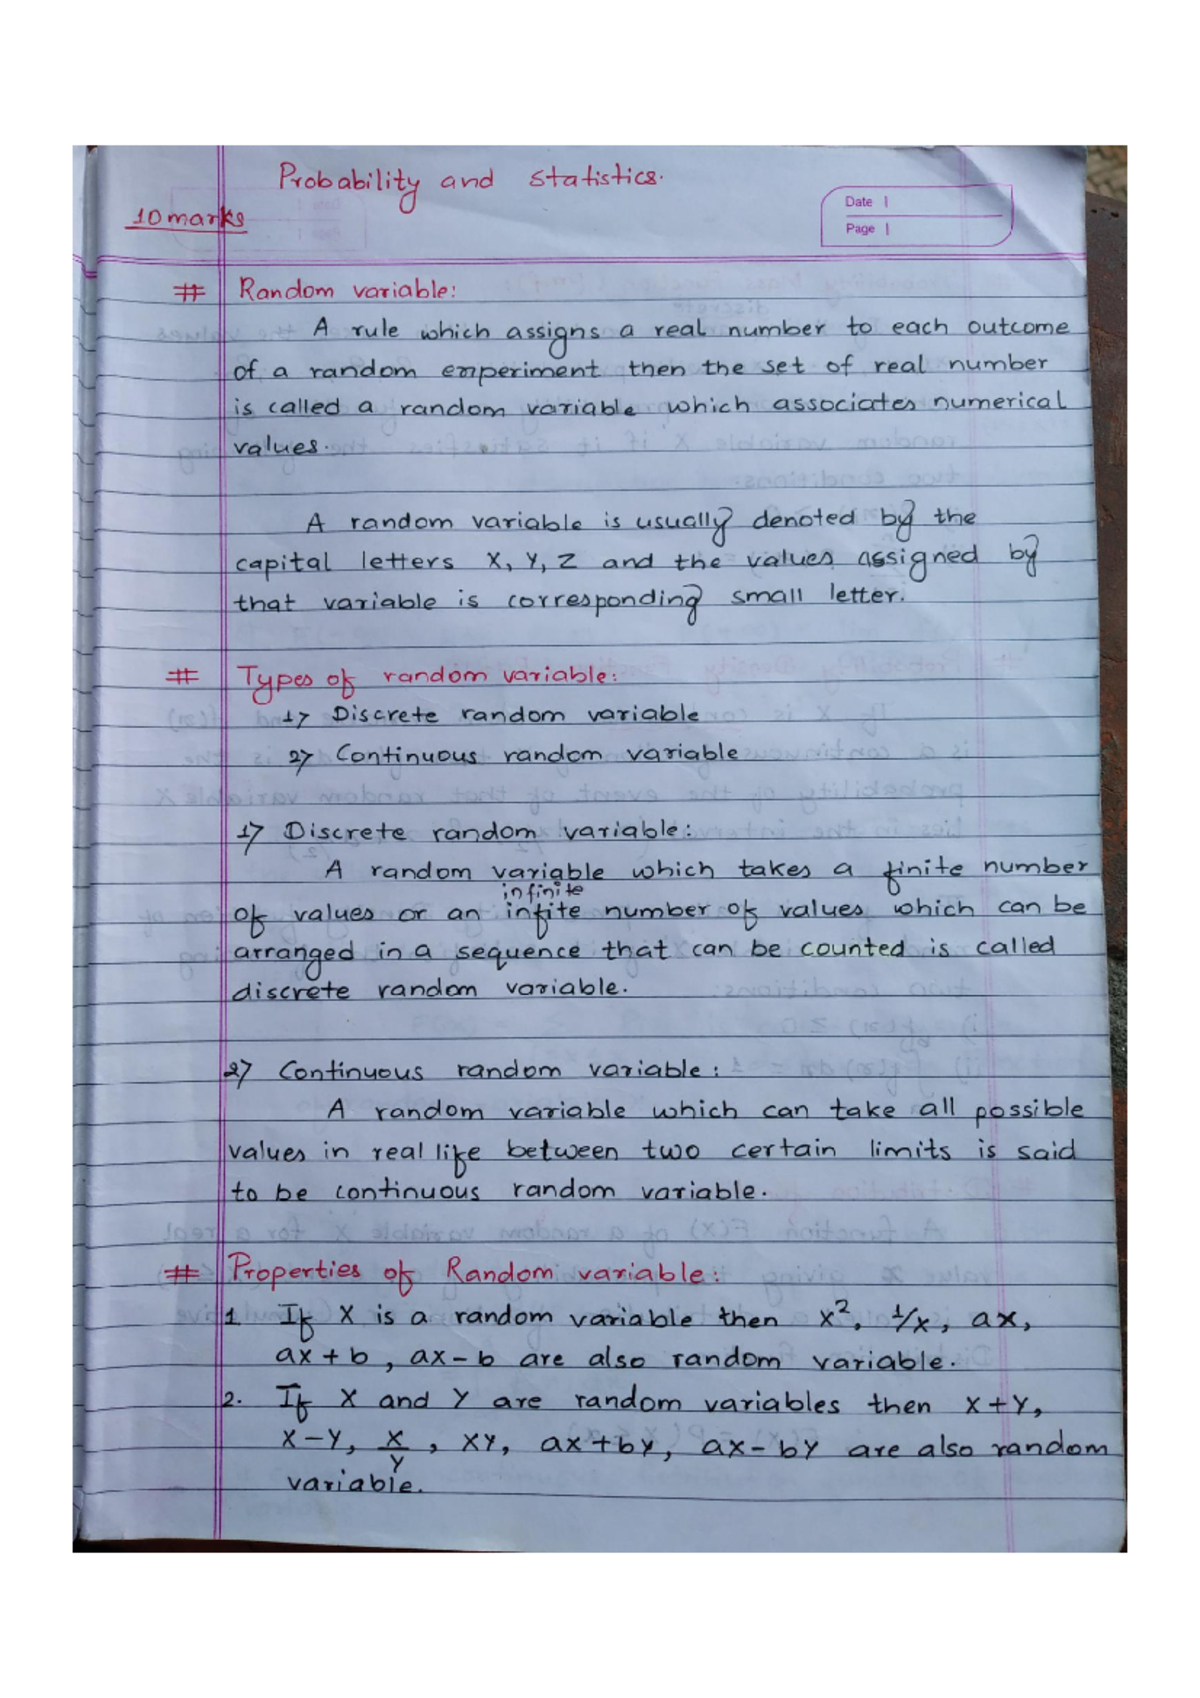 Probability and statistics.
10 marks
Date
Page
# Random variable:
A rule which assigns a real number to each outcome
of a random experiment then the set of real number
is called a random variable which associates numerical
values.
A random variable is usually denoted by the
capital letters X, Y, Z and the values assigned by
that variable is corresponding small letter.
# Types of random variable:
1) Discrete random variable
2) Continuous random variable
1) Discrete random variable:
A random variable which takes a finite number
infinite
of values or an infite number of values which can be
arranged in a sequence that can be counted is called
discrete random variable.
2) Continuous random variable:
A random variable which can take all possible
values in real life between two certain limits is said
to be continuous random variable.
# Properties of Random variable:
1. If X is a random variable then x², 1/x, ax,
ax + b, ax - b are also random variable.
2. If X and Y are random variables then X+Y,
X-Y, X/Y, XY, ax+by, ax-by are also random
variable.